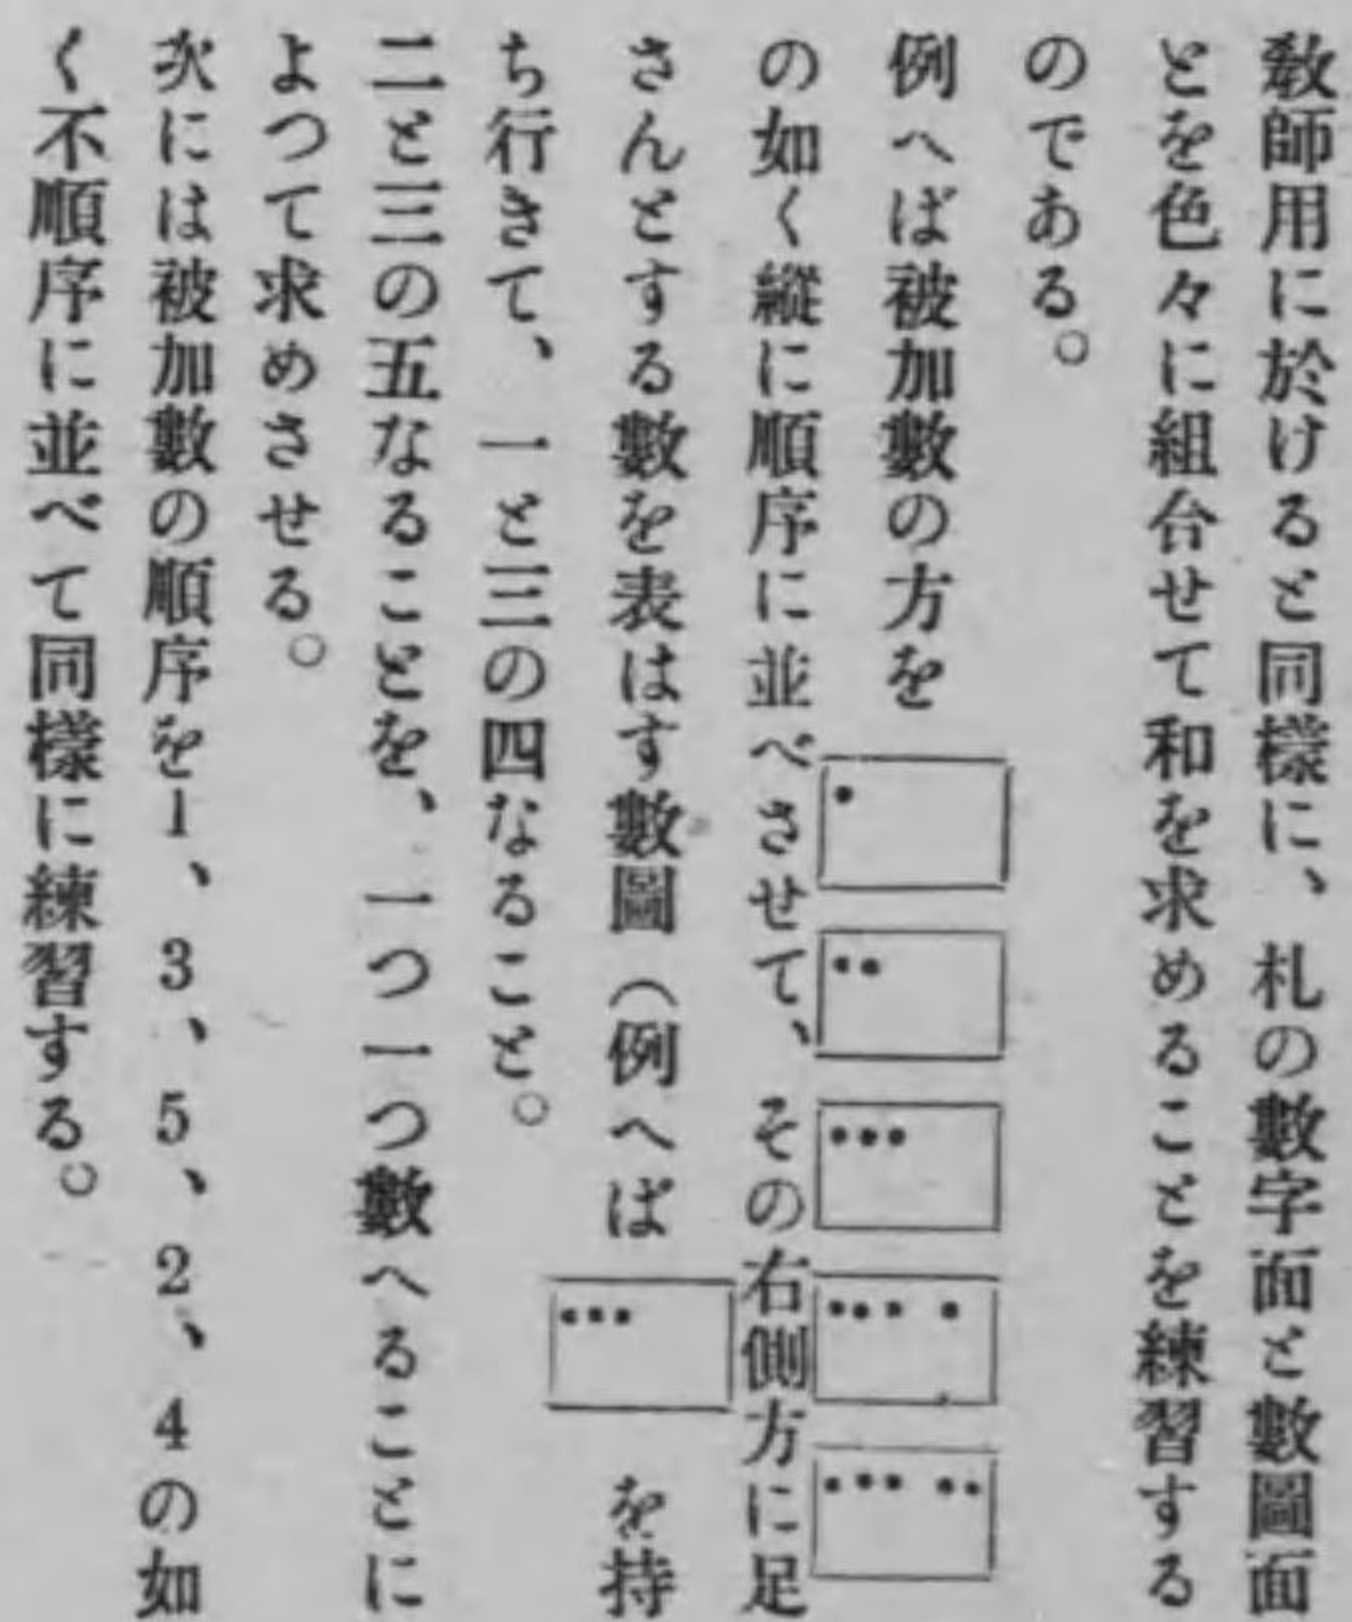 敎師用に於けると同樣に、札の數字面と數圖面
とを色々に組合せて和を求めることを練習する
のである。
例へば被加數の方を
の如く縱に順序に並べさせて、その右側方に足
さんとする數を表はす數圖(例へば を持
ち行きて、一と三の四なること。
二と三の五なることを、一つ一つ數へることに
よつて求めさせる。
次には被加數の順序を1、3、5、2、4の如
く不順序に並べて同樣に練習する。